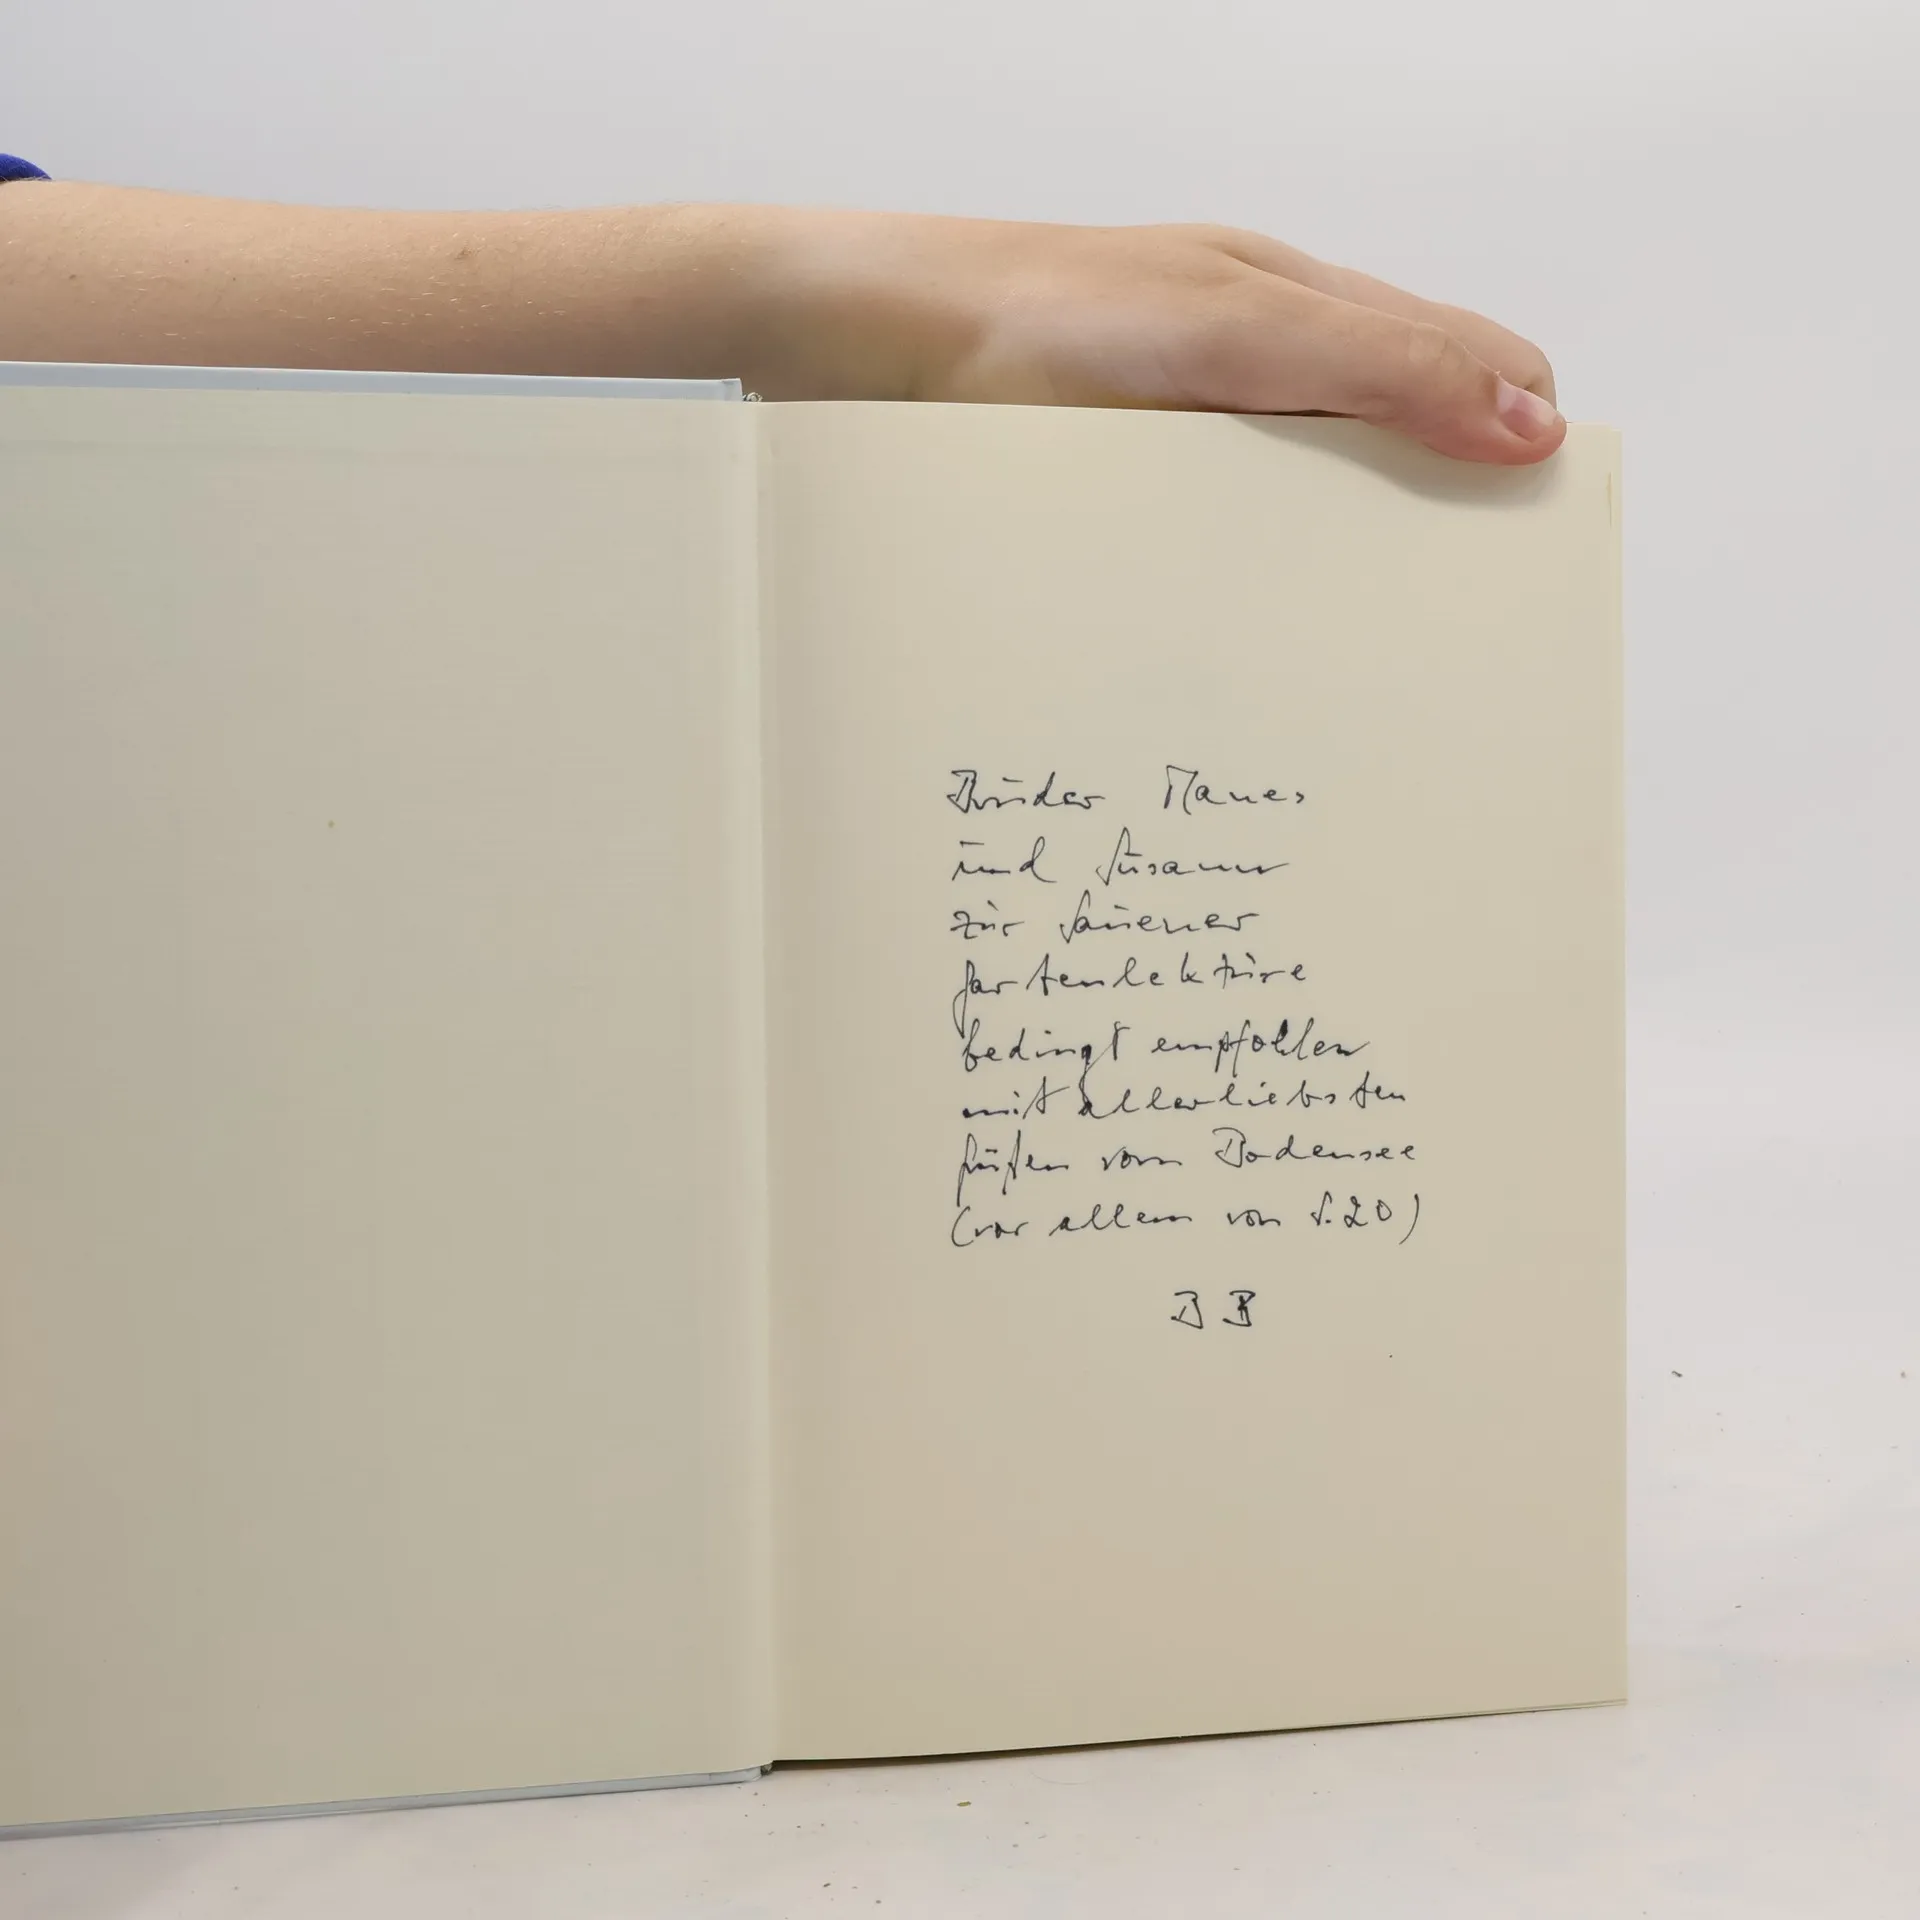 Bruder Manes
und Susann
zur Sauener
Gartenlektüre
bedingt empfohlen
mit allerliebsten
Grüßen vom Bodensee
(vor allem von S. 20)
B B